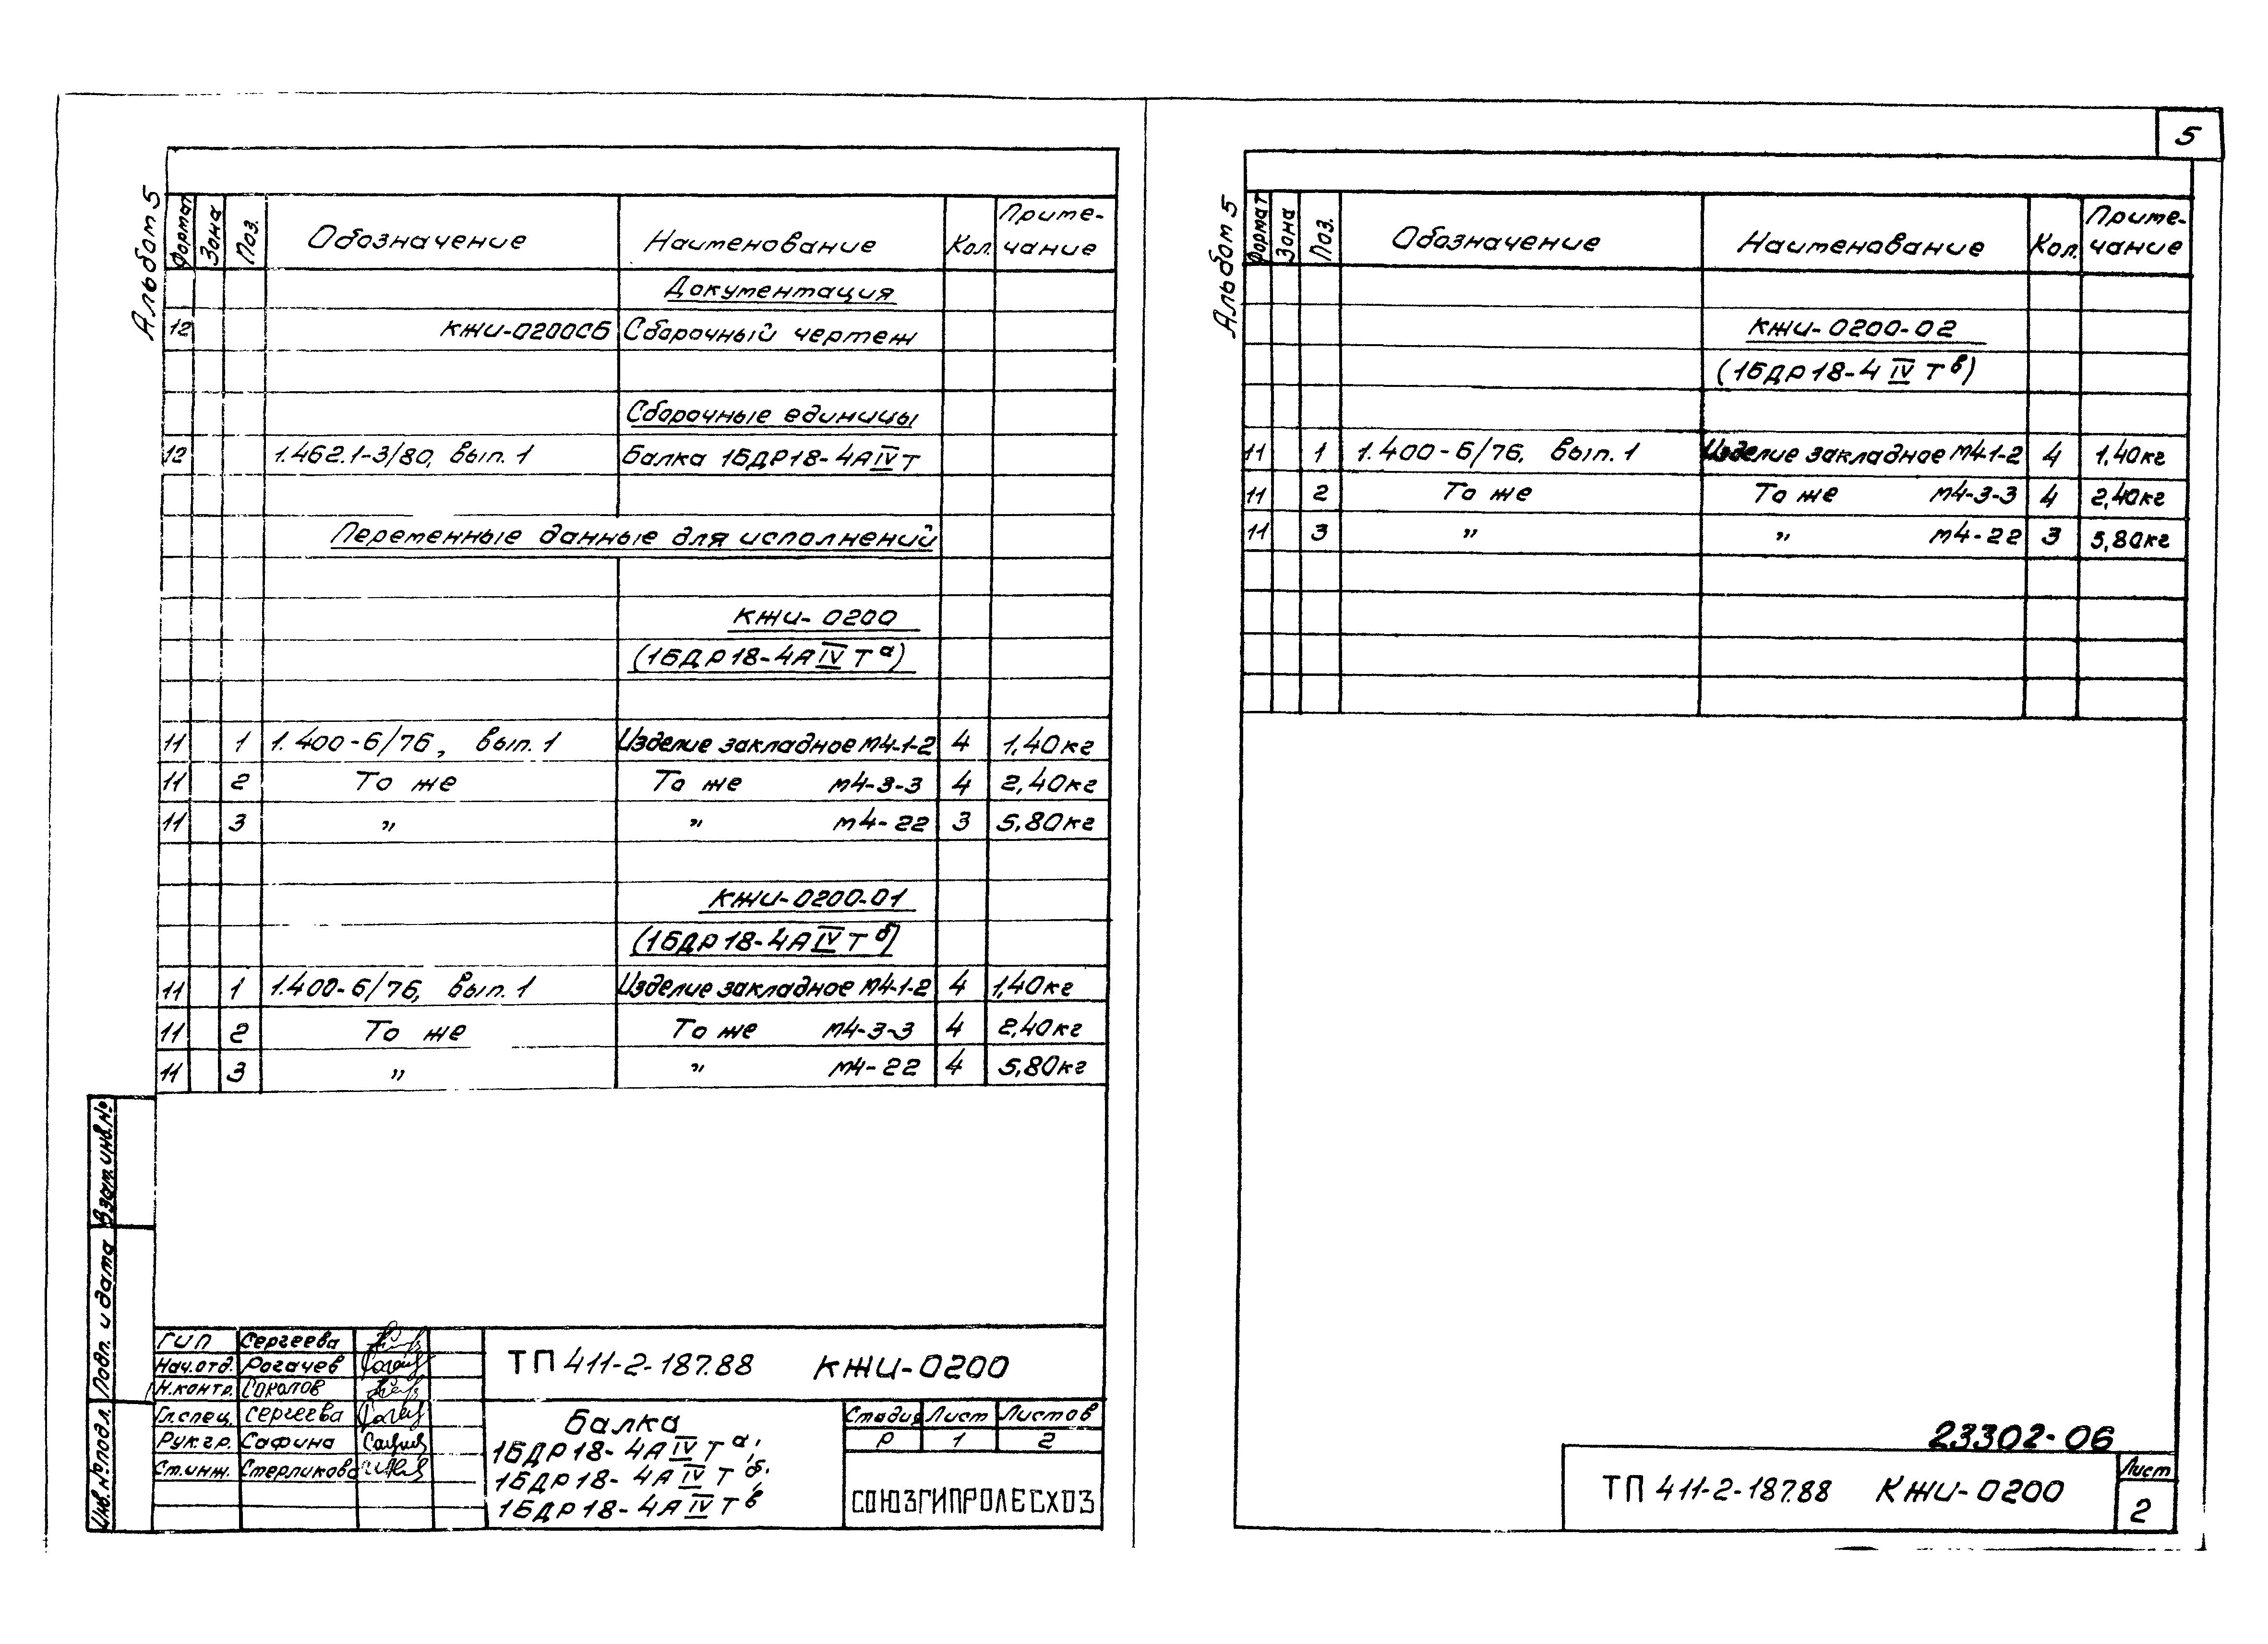 5
Альбом 5
Формат Зона Поз. Обозначение Наименование Кол. Приме-
чание
Документация
12 КЖИ-0200СБ Сборочный чертеж
Сборочные единицы
12 1.462.1-3/80, вып. 1 Балка 1БДР18-4АIVТ
Переменные данные для исполнений
КЖИ-0200
(1БДР18-4АIVТа)
11 1 1.400-6/76, вып. 1 Изделие закладное М4-1-2 4 1,40кг
11 2 То же То же М4-3-3 4 2,40кг
11 3 " " М4-22 3 5,80кг
КЖИ-0200-01
(1БДР18-4АIVТб)
11 1 1.400-6/76, вып. 1 Изделие закладное М4-1-2 4 1,40кг
11 2 То же То же М4-3-3 4 2,40кг
11 3 " " М4-22 4 5,80кг
Взам. инв. №
Подп. и дата
Инв. № подл.
ГИП Сергеева
Нач.отд. Рогачев
Н.контр. Соколов
Гл.спец. Сергеева
Рук.гр. Сафина
Ст.инж. Стерликова
ТП 411-2-187.88 КЖИ-0200
Балка
1БДР18-4АIVТа,
1БДР18-4АIVТб,
1БДР18-4АIVТв
Стадия Лист Листов
Р 1 2
СОЮЗГИПРОЛЕСХОЗ
Альбом 5
Формат Зона Поз. Обозначение Наименование Кол. Приме-
чание
КЖИ-0200-02
(1БДР18-4IVТв)
11 1 1.400-6/76, вып. 1 Изделие закладное М4-1-2 4 1,40кг
11 2 То же То же М4-3-3 4 2,40кг
11 3 " " М4-22 3 5,80кг
23302-06
ТП 411-2-187.88 КЖИ-0200
Лист
2